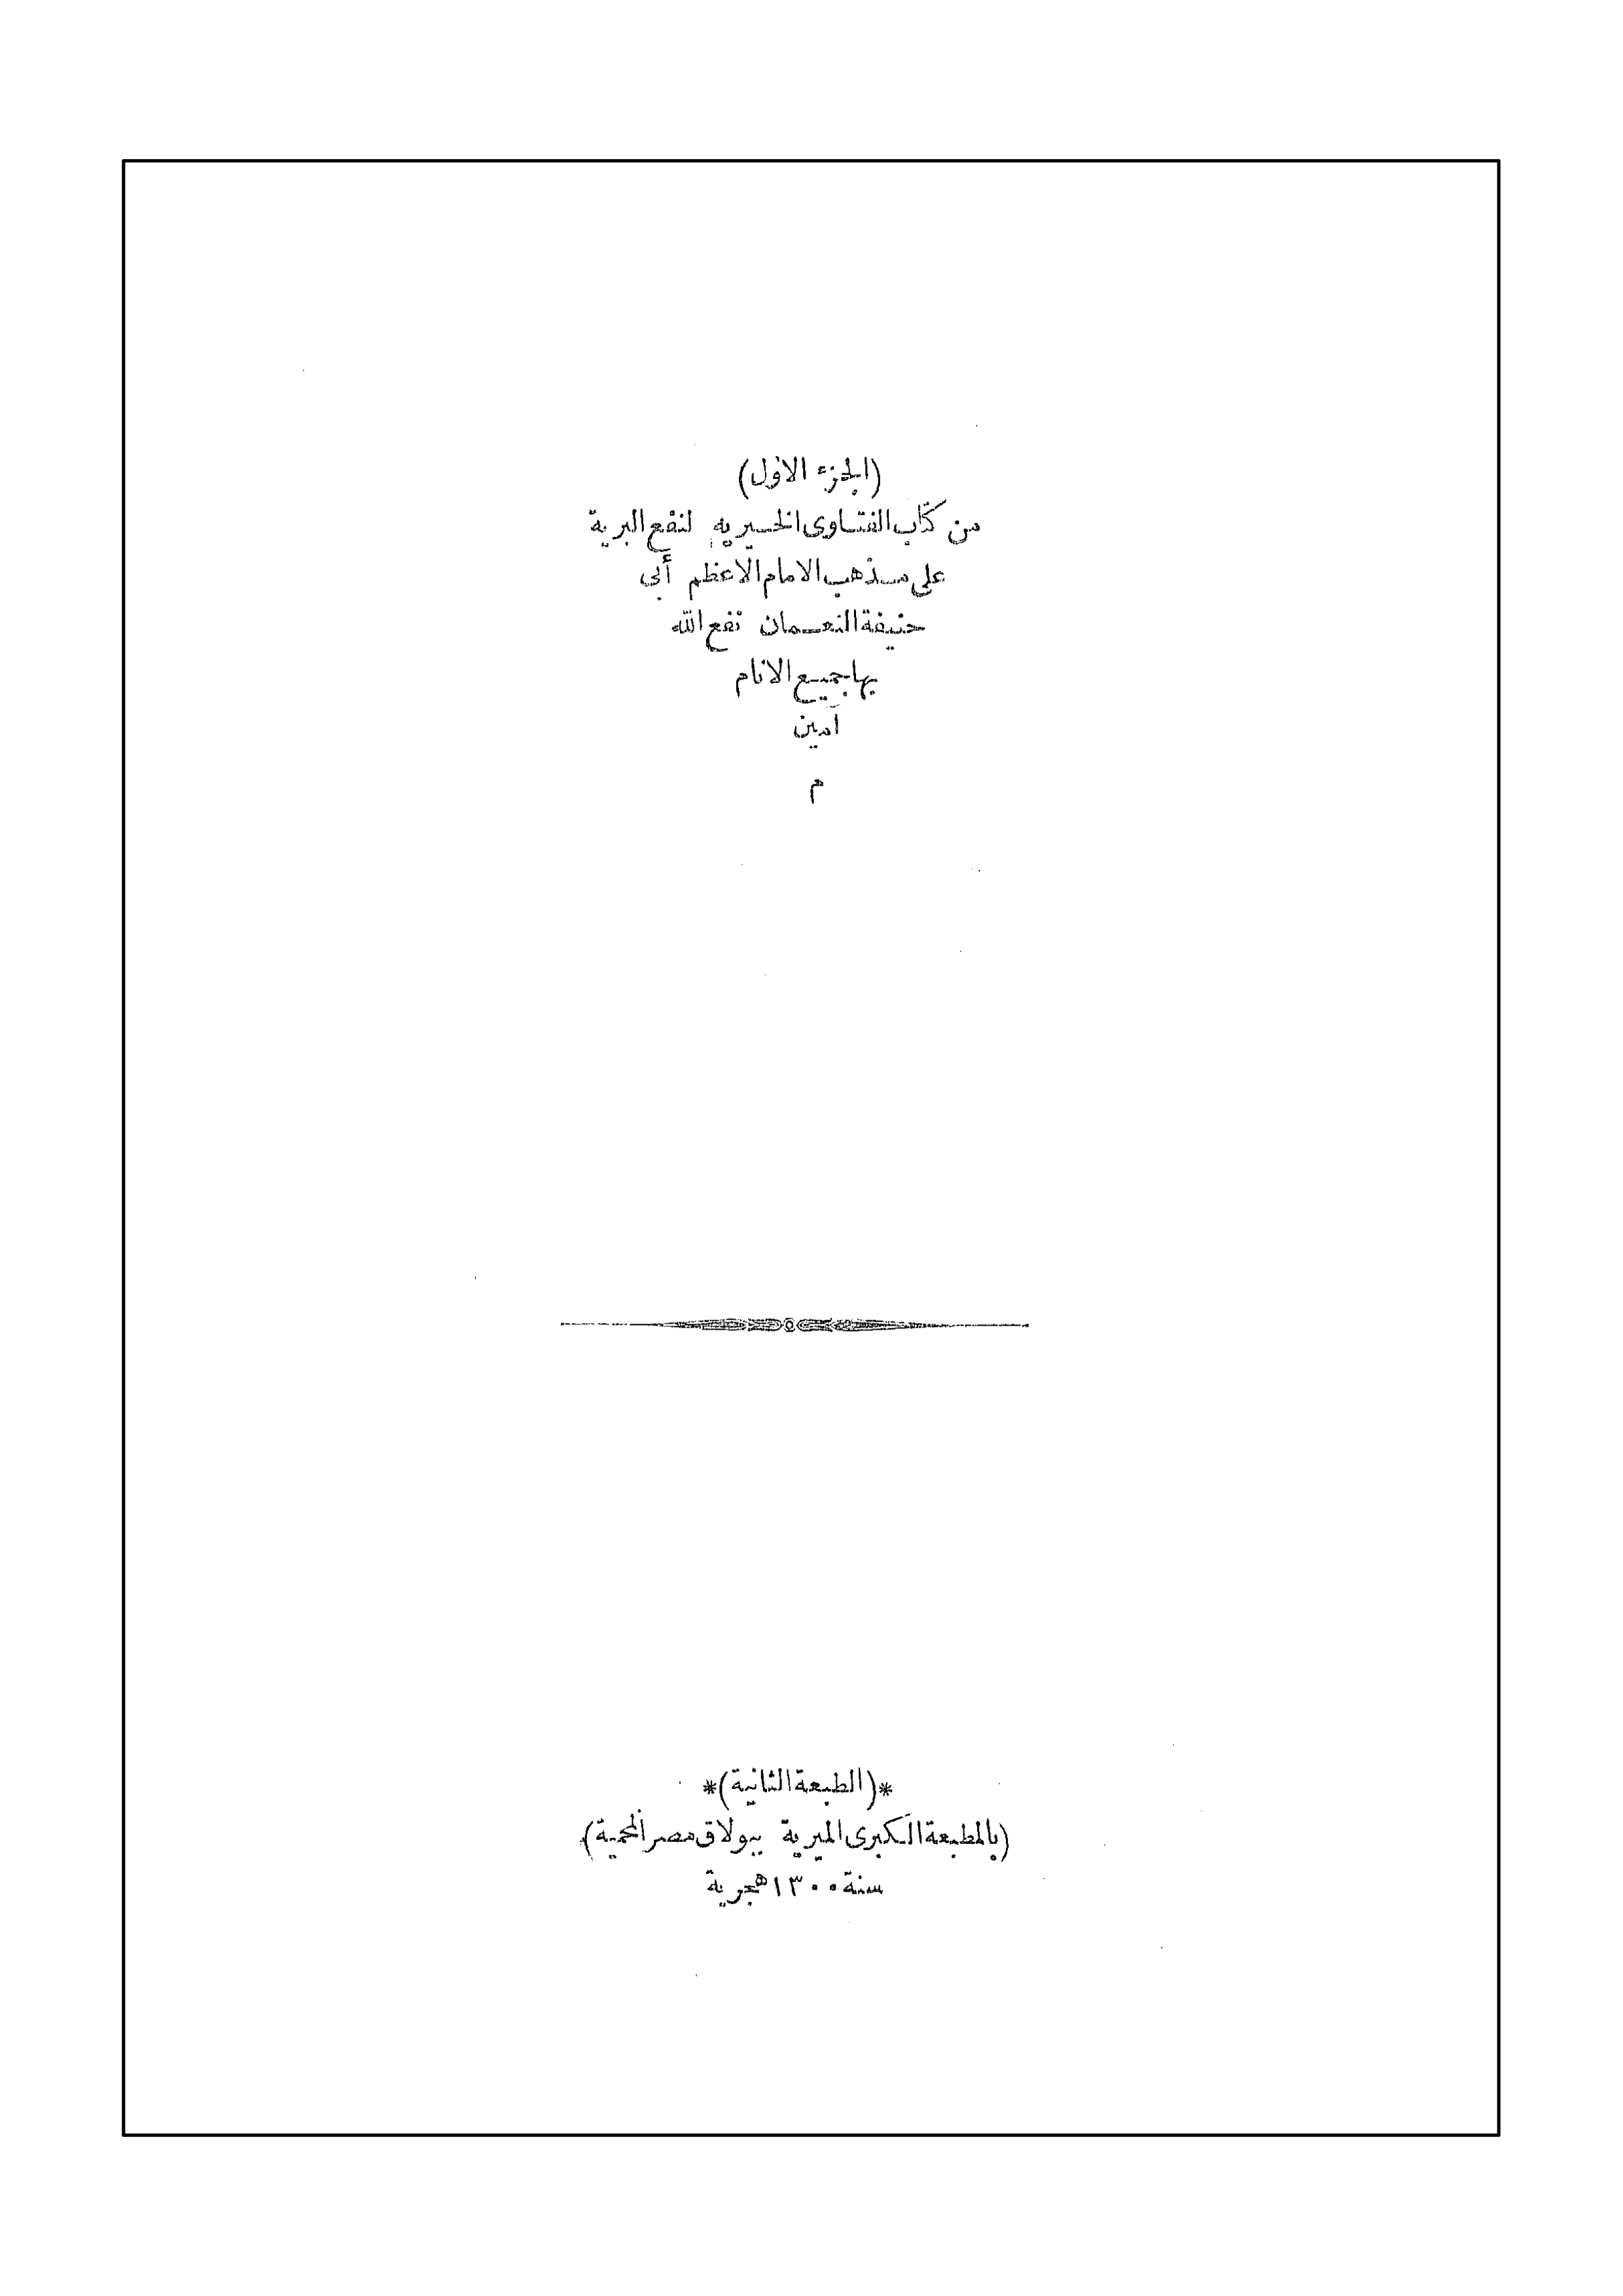 (الجزء الاول)
من كتاب الفتاوى الخيريه لنفع البرية
على مذهب الامام الاعظم أبى
حنيفة النعمان نفع الله
بها جميع الانام
آمين
م
*(الطبعة الثانية)*
(بالمطبعة الكبرى الميرية ببولاق مصر المحمية)
سنة ١٣٠٠ هجرية